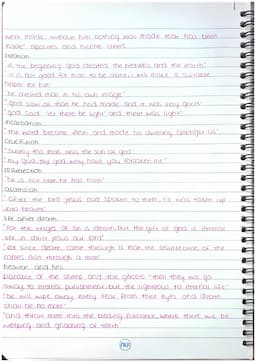 were made; without him nothing was made that has been
made" apostles and nicene creed
creation
"in the beginning god created the heavens and the earth"
"it is not good for man to be alone, i will make a suitable
helper for him"
"he created man in his own image"
"god saw all that he had made and it was very good"
"god said "let there be light" and there was light"
incarnation
"the word became flesh and made his dwelling amongst us"
crucifixion
"surely this man was the son of god"
"my god, my god why have you forsaken me"
resurrection
"he is not here he has risen"
ascension
"after the lord jesus had spoken to them, he was taken up
into heaven"
life after death
"for the wages of sin is death but the gift of god is eternal
life in christ jesus our lord"
"for since death came through a man the resurrection of the
comes also through a man"
heaven and hell
parable of the sheep and the goats "then they will go
away to eternal punishment but the righteous to eternal life"
"he will wipe away every tear from their eyes and death
shall be no more"
"and throw them into the blazing furnace, where there will be
weeping and gnashing of teeth"